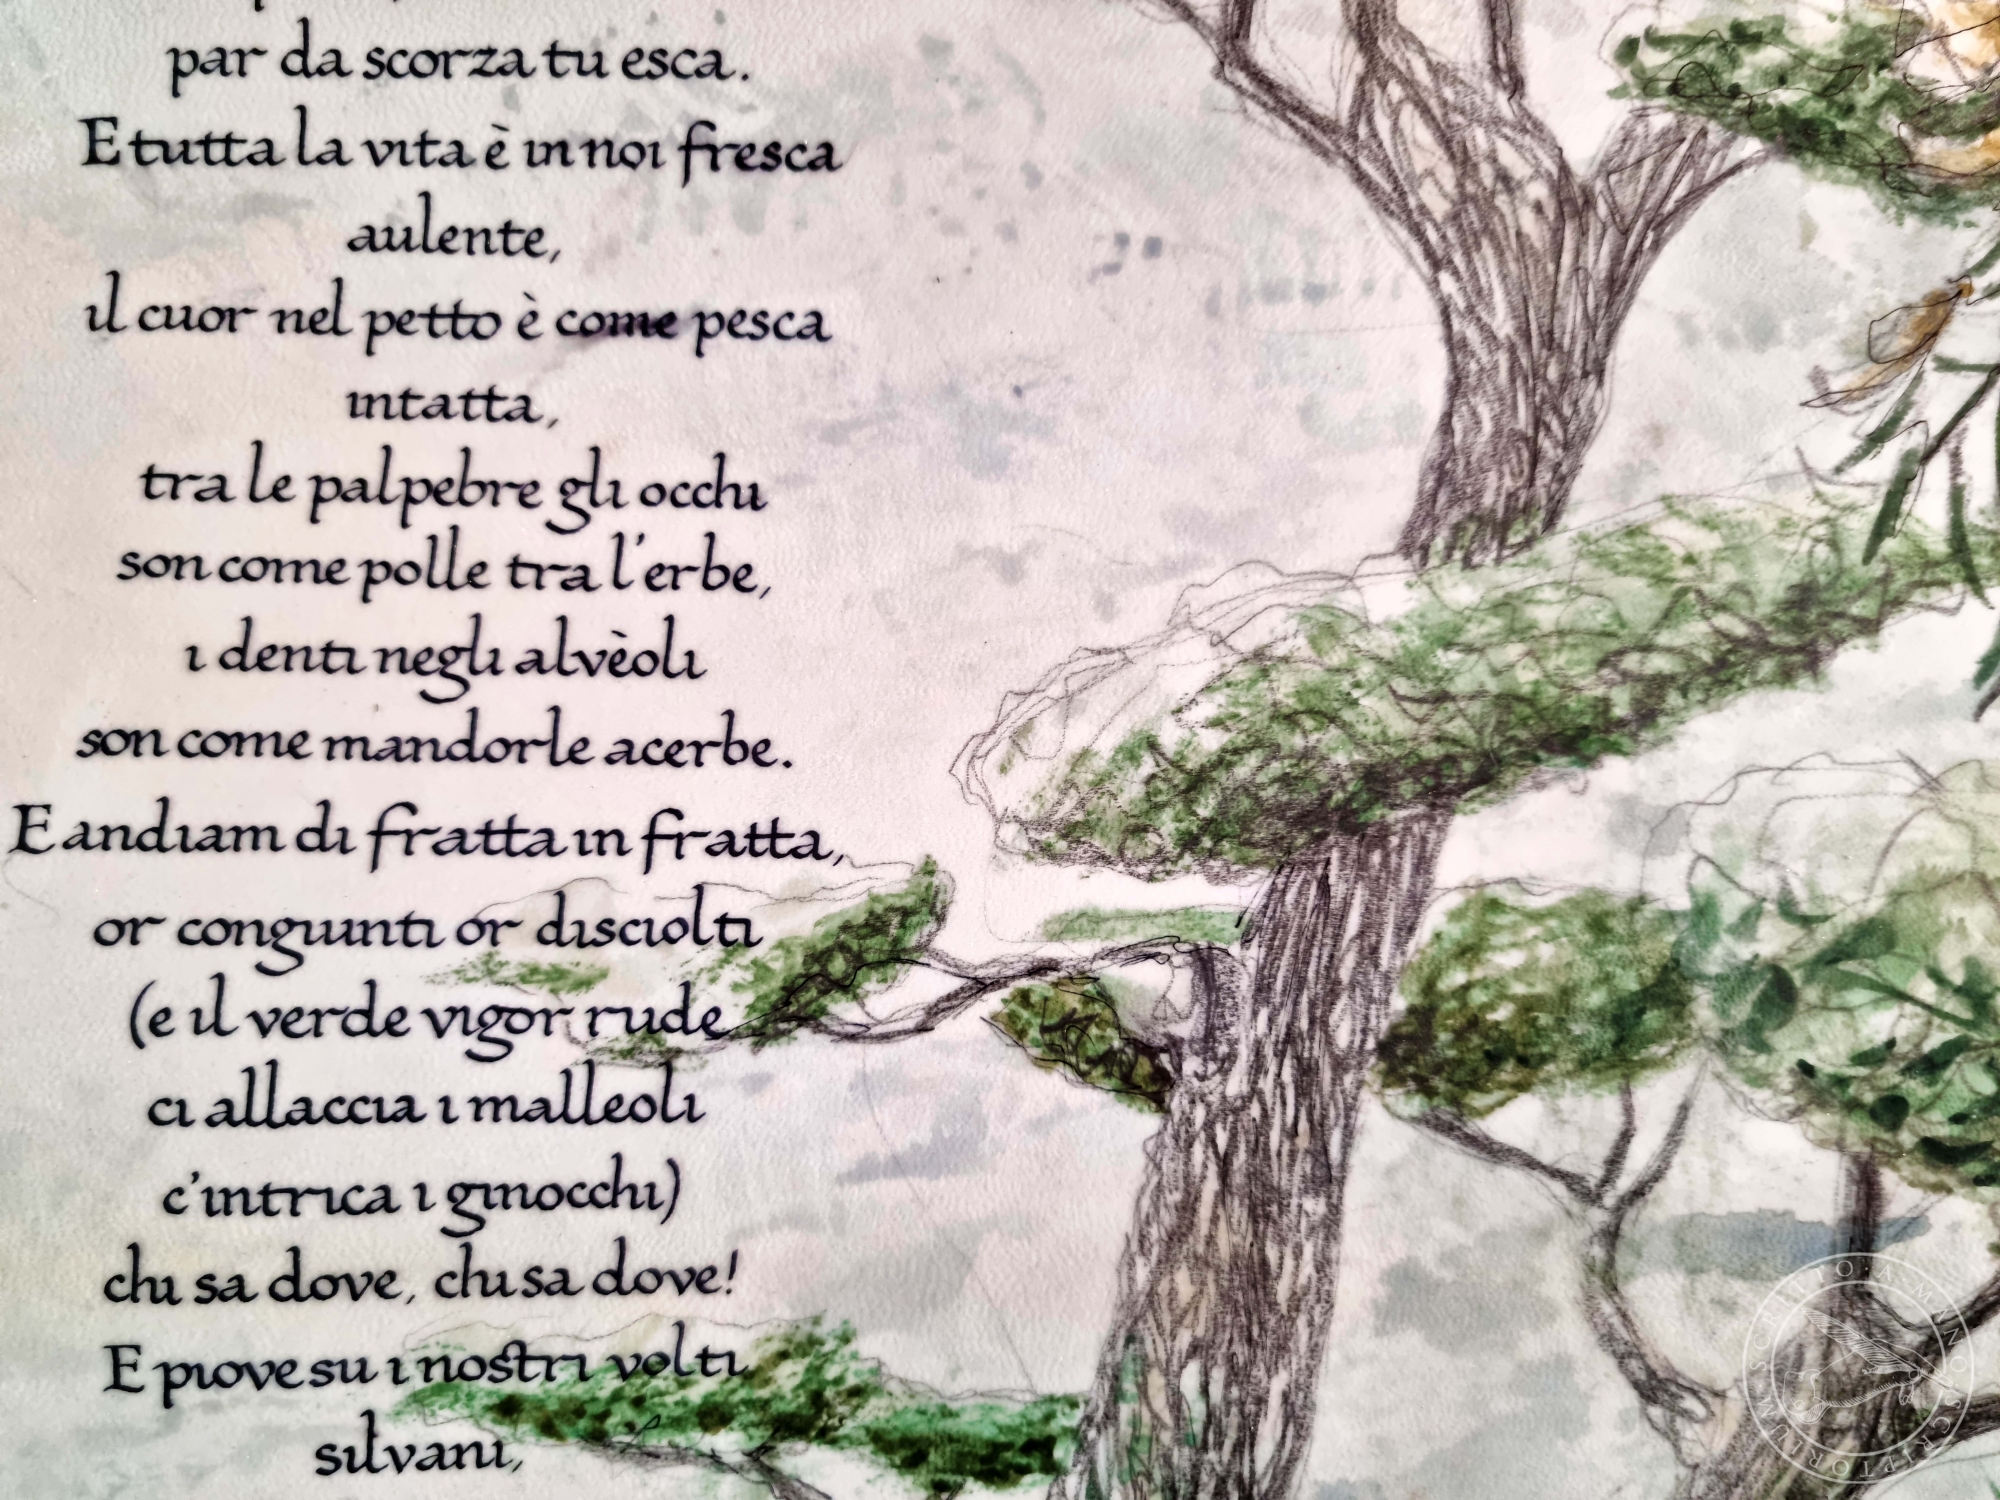 par da scorza tu esca.
E tutta la vita è in noi fresca
aulente,
il cuor nel petto è come pesca
intatta,
tra le palpebre gli occhi
son come polle tra l'erbe,
i denti negli alvèoli
son come mandorle acerbe.
E andiam di fratta in fratta,
or congiunti or disciolti
(e il verde vigor rude
ci allaccia i malleoli
c'intrica i ginocchi)
chi sa dove, chi sa dove!
E piove su i nostri volti
silvani,
SCRITTO A MANO SCRIPTORIUM